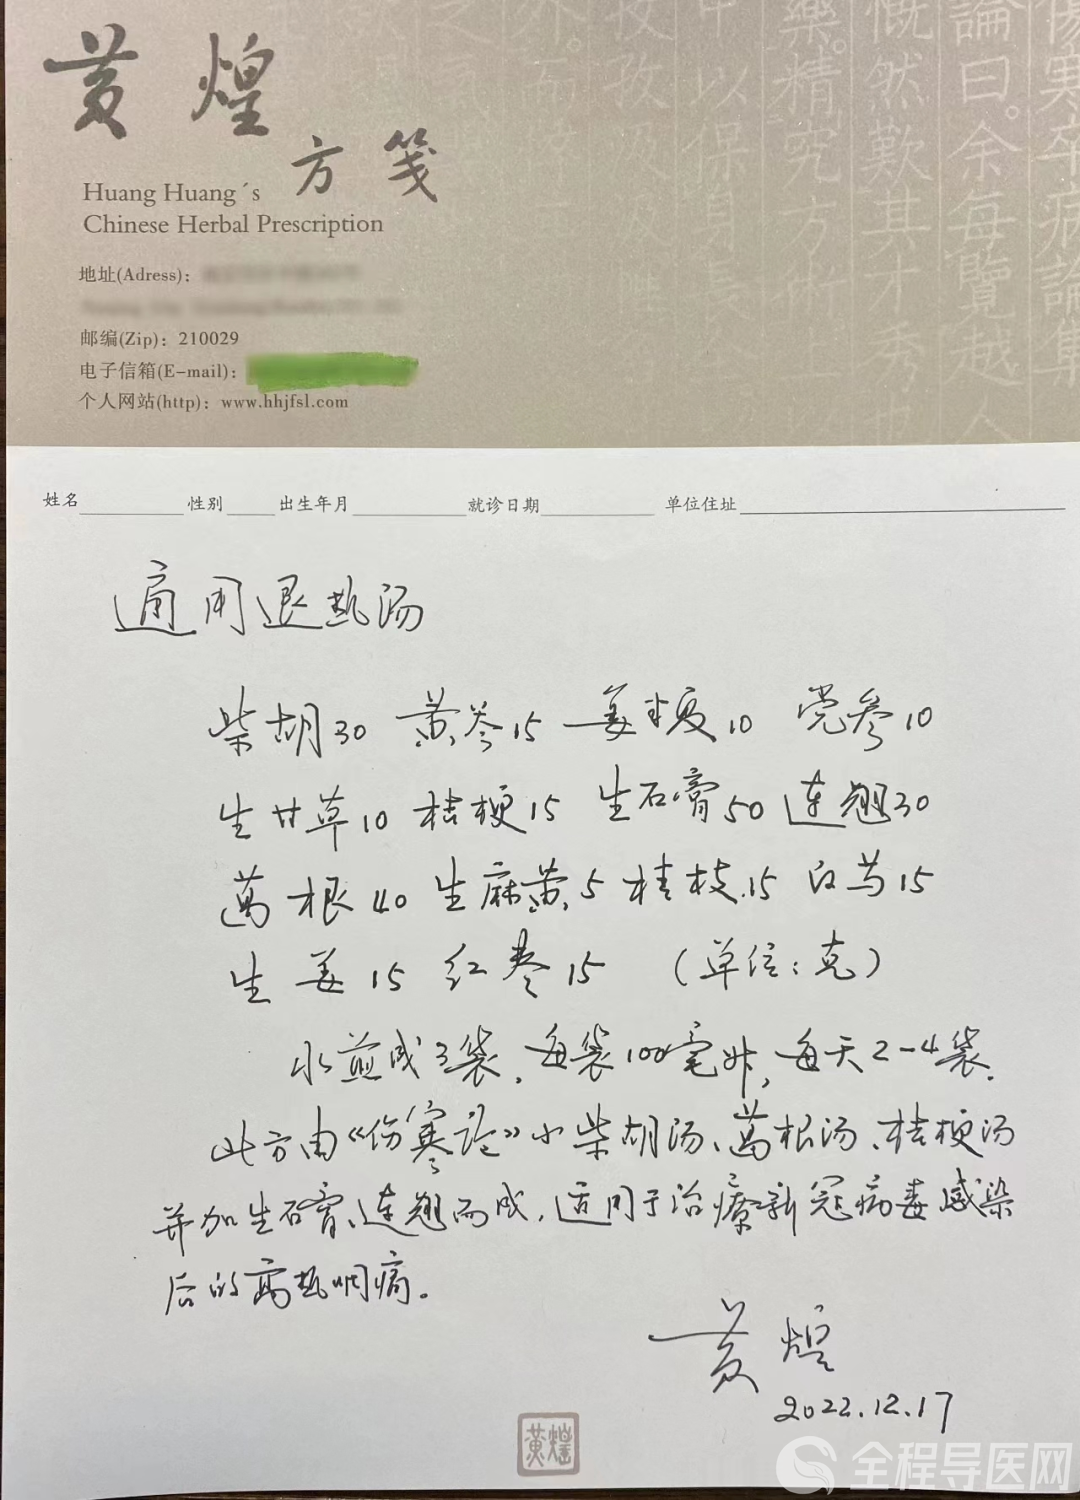 黄煌
方笺
Huang Huang´s
Chinese Herbal Prescription
地址(Adress)：
邮编(Zip)：210029
电子信箱(E-mail)：
个人网站(http)：www.hhjfsl.com
傷寒卒病論集
論曰。余每覽越人
慨然歎其才秀也
藥。精究方術
中以保身長
姓名 性别 出生年月 就诊日期 单位住址
通用退热汤
柴胡30 黄芩15 姜半夏10 党参10
生甘草10 桔梗15 生石膏50 连翘30
葛根40 生麻黄5 桂枝15 白芍15
生姜15 红枣15 （单位：克）
水煎成3袋，每袋100毫升，每天2-4袋。
此方由《伤寒论》小柴胡汤、葛根汤、桔梗汤
并加生石膏、连翘而成，适用于治療新冠病毒感染
后的高热咽痛。
黄煌
2022.12.17
黄煌
全程导医网